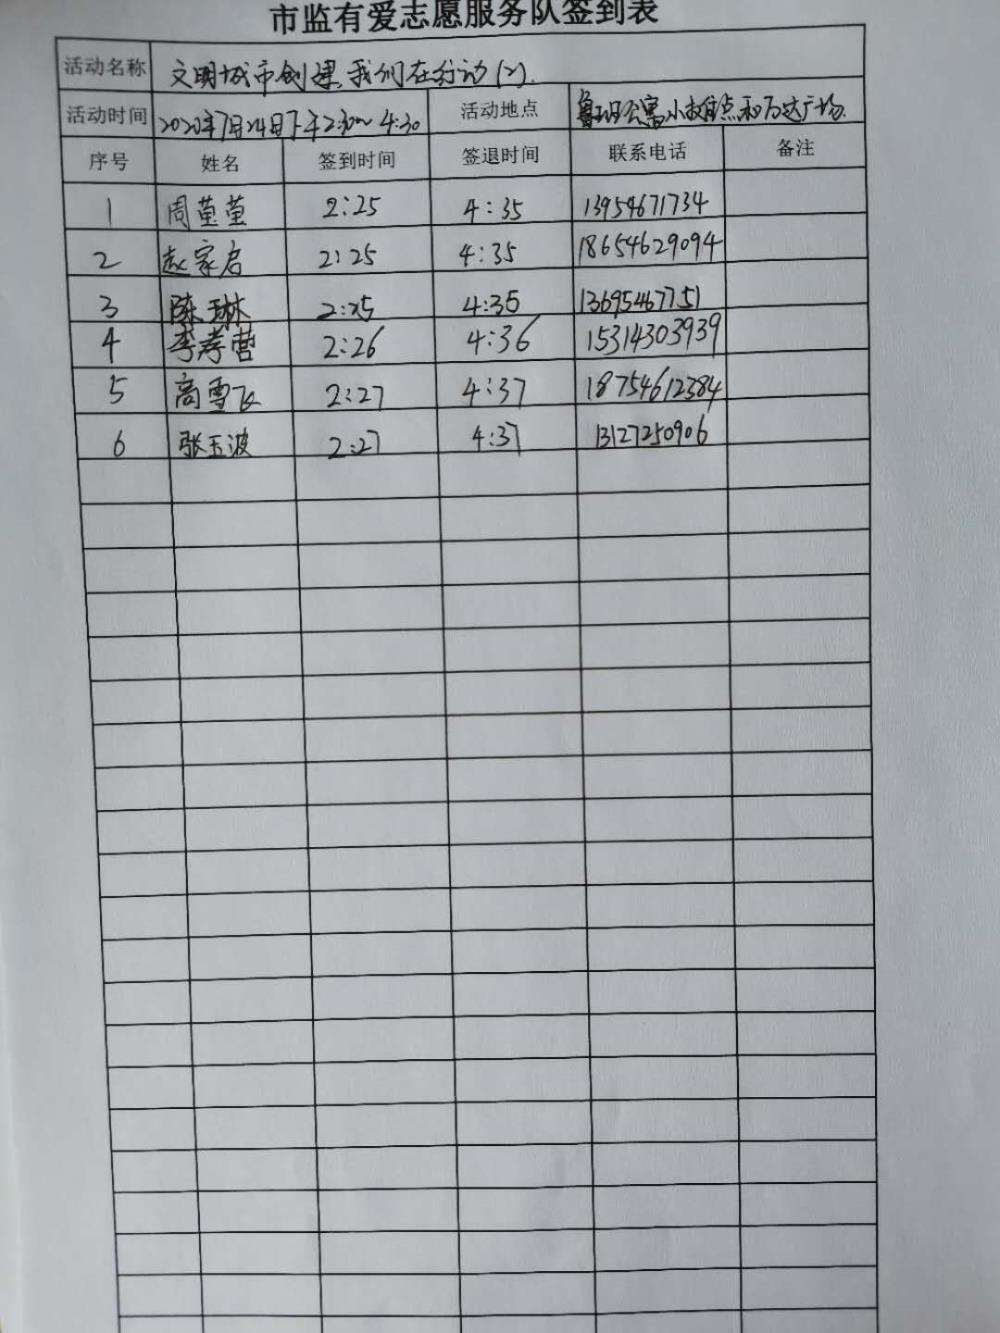 市监有爱志愿服务队签到表
活动名称 文明城市创建,我们在行动(2).
活动时间 2020年7月24日下午2:30~4:30 活动地点 鲁班公寓小 点和万达广场.
序号 姓名 签到时间 签退时间 联系电话 备注
1 周莹莹 2:25 4:35 13954671734
2 赵家启 2:25 4:35 18654629094
3 陈琳 2:25 4:35 13695467751
4 李孝营 2:26 4:36 15314303939
5 高雪飞 2:27 4:37 18754612384
6 张玉波 2:27 4:37 13127250906